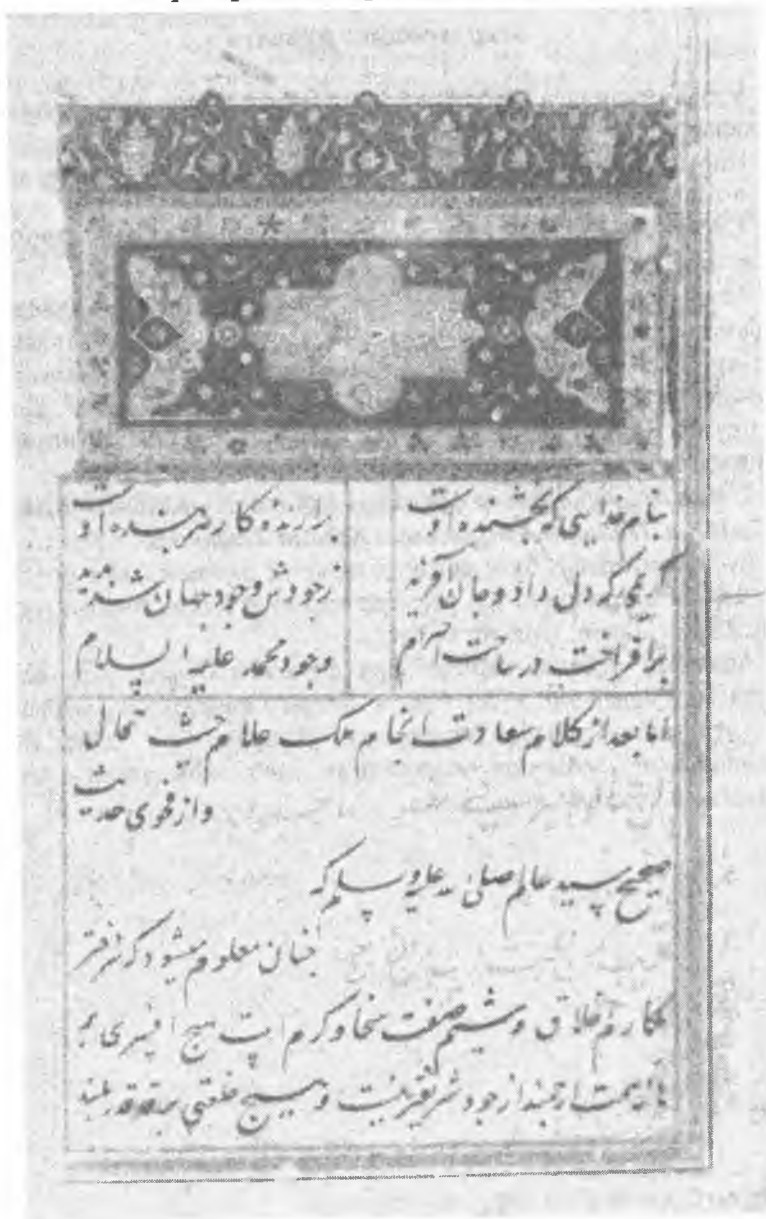 بنام خدایی که بخشنده اوست برازنده کار هر بنده اوست
کریمی که دل داد و جان آفرید زجودش وجود جهان شد پدید
برافراخت در ساحت وجود محمد علیه السلام
اما بعد از کلام سعادت انجام ملک علام حیث قال
و از فحوی حدیث
صحیح سید عالم صلی الله علیه وسلم که
چنان معلوم میشود که شریفتر
مکارم اخلاق و شیم صفت سخا و کرم است هیچ افسری بر
ارجمند از جود شریفتر نیست و هیچ خلعتی بر قد قدر بلند